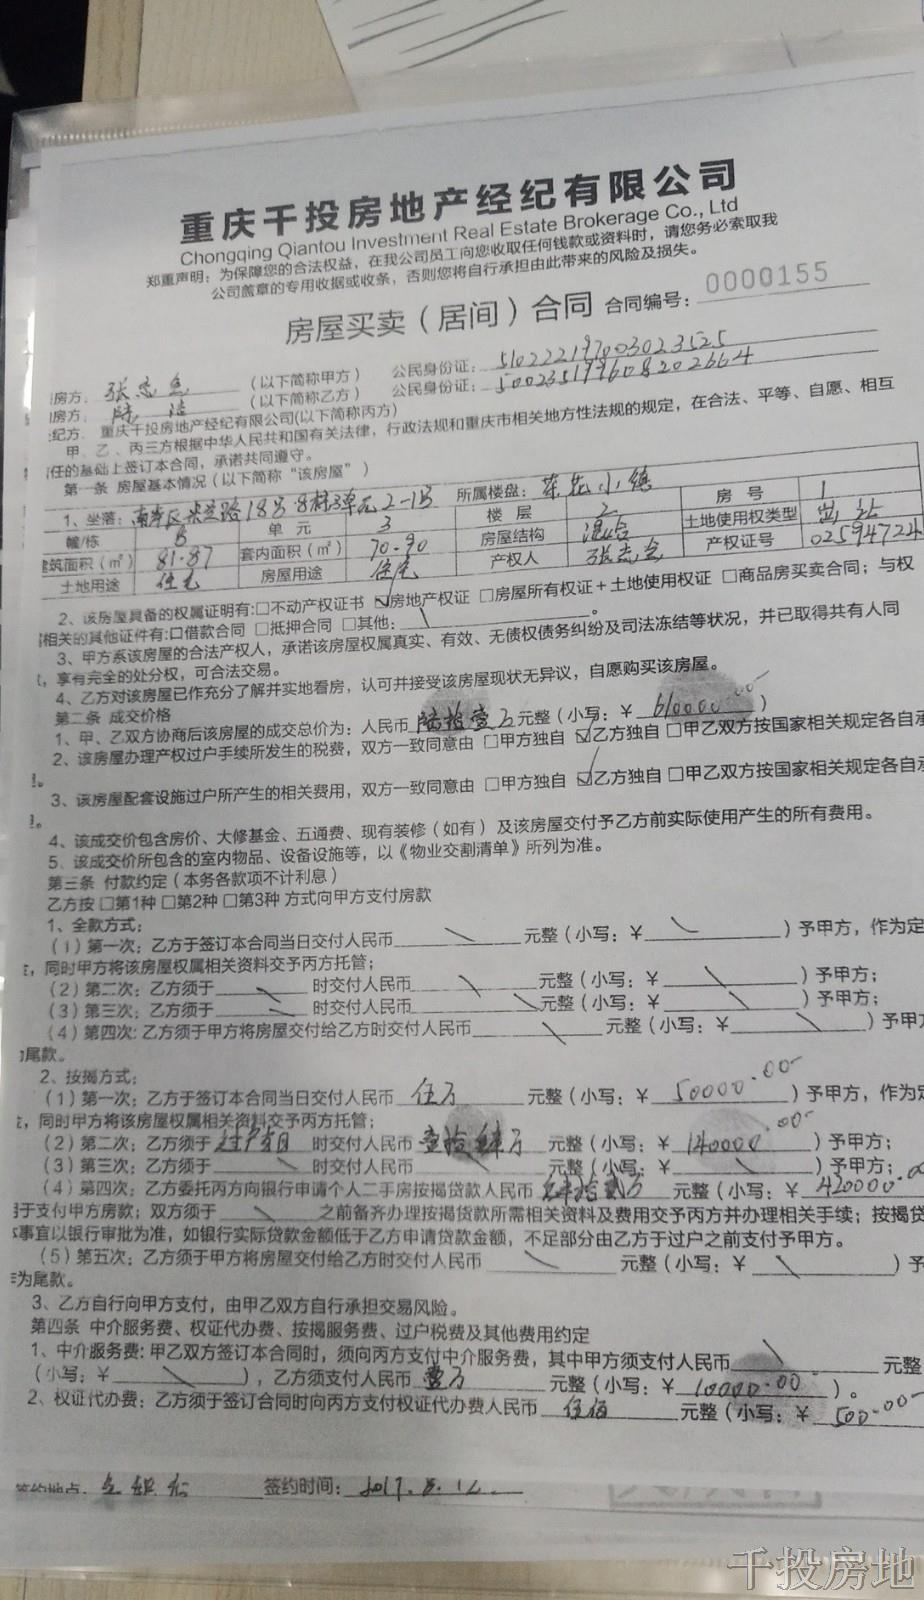 重庆千投房地产经纪有限公司
Chongqing Qiantou Investment Real Estate Brokerage Co., Ltd
郑重声明：为保障您的合法权益，在我公司员工向您收取任何钱款或资料时，请您务必索取我
公司盖章的专用收据或收条，否则您将自行承担由此带来的风险及损失。
房屋买卖（居间）合同 合同编号：0000155
房方： （以下简称甲方） 公民身份证：510222197003023525
房方： （以下简称乙方） 公民身份证：500235199608202664
纪方：重庆千投房地产经纪有限公司(以下简称丙方)
甲、乙、丙三方根据中华人民共和国有关法律，行政法规和重庆市相关地方性法规的规定，在合法、平等、自愿、相互
任的基础上签订本合同，承诺共同遵守。
第一条 房屋基本情况（以下简称“该房屋”）
1、坐落：南岸区 路18号8栋3单元2-1号 所属楼盘： 小镇
幢/栋 8 单 元 3 楼 层 2 房 号 1
建筑面积（㎡） 81.87 套内面积（㎡） 70.90 房屋结构 混合 土地使用权类型 出让
土地用途 住宅 房屋用途 住宅 产权人 产权证号 02594724
2、该房屋具备的权属证明有:□不动产权证书 ☑房地产权证 □房屋所有权证＋土地使用权证 □商品房买卖合同；与权
相关的其他证件有:口借款合同 □抵押合同 □其他: 。
3、甲方系该房屋的合法产权人，承诺该房屋权属真实、有效、无债权债务纠纷及司法冻结等状况，并已取得共有人同
，享有完全的处分权，可合法交易。
4、乙方对该房屋已作充分了解并实地看房，认可并接受该房屋现状无异议，自愿购买该房屋。
第二条 成交价格
1、甲、乙双方协商后该房屋的成交总价为：人民币 陆拾壹万 元整（小写：￥ 610000.00 ）
2、该房屋办理产权过户手续所发生的税费，双方一致同意由 □甲方独自 ☑乙方独自 □甲乙双方按国家相关规定各自承
。
3、该房屋配套设施过户所产生的相关费用，双方一致同意由 □甲方独自 ☑乙方独自 □甲乙双方按国家相关规定各自承
。
4、该成交价包含房价、大修基金、五通费、现有装修（如有）及该房屋交付予乙方前实际使用产生的所有费用。
5、该成交价所包含的室内物品、设备设施等，以《物业交割清单》所列为准。
第三条 付款约定（本务各款项不计利息）
乙方按 □第1种 □第2种 □第3种 方式向甲方支付房款
1、全款方式：
（1）第一次：乙方于签订本合同当日交付人民币 元整（小写：￥ ）予甲方，作为定
，同时甲方将该房屋权属相关资料交予丙方托管；
（2）第二次：乙方须于 时交付人民币 元整（小写：￥ ）予甲方；
（3）第三次：乙方须于 时交付人民币 元整（小写：￥ ）予甲方；
（4）第四次：乙方须于甲方将房屋交付给乙方时交付人民币 元整（小写：￥ ）予甲
尾款。
2、按揭方式：
（1）第一次：乙方于签订本合同当日交付人民币 伍万 元整（小写：￥ 50000.00 ）予甲方，作为定
，同时甲方将该房屋权属相关资料交予丙方托管；
（2）第二次：乙方须于 过户当日 时交付人民币 壹拾肆万 元整（小写：￥ 140000.00 ）予甲方；
（3）第三次：乙方须于 时交付人民币 元整（小写：￥ ）予甲方；
（4）第四次：乙方委托丙方向银行申请个人二手房按揭贷款人民币 肆拾贰万 元整（小写：￥ 420000.00
于支付甲方房款；双方须于 之前备齐办理按揭贷款所需相关资料及费用交予丙方并办理相关手续；按揭贷
事宜以银行审批为准，如银行实际贷款金额低于乙方申请贷款金额，不足部分由乙方于过户之前支付予甲方。
（5）第五次：乙方须于甲方将房屋交付给乙方时交付人民币 元整（小写：￥ ）予
为尾款。
3、乙方自行向甲方支付，由甲乙双方自行承担交易风险。
第四条 中介服务费、权证代办费、按揭服务费、过户税费及其他费用约定
1、中介服务费：甲乙双方签订本合同时，须向丙方支付中介服务费，其中甲方须支付人民币 元整
（小写：￥ ），乙方须支付人民币 壹万 元整（小写：￥ 10000.00 ）。
2、权证代办费：乙方须于签订合同时向丙方支付权证代办费人民币 伍佰 元整（小写：￥ 500.00
签约地点： 签约时间：2017.8.12
千投房地